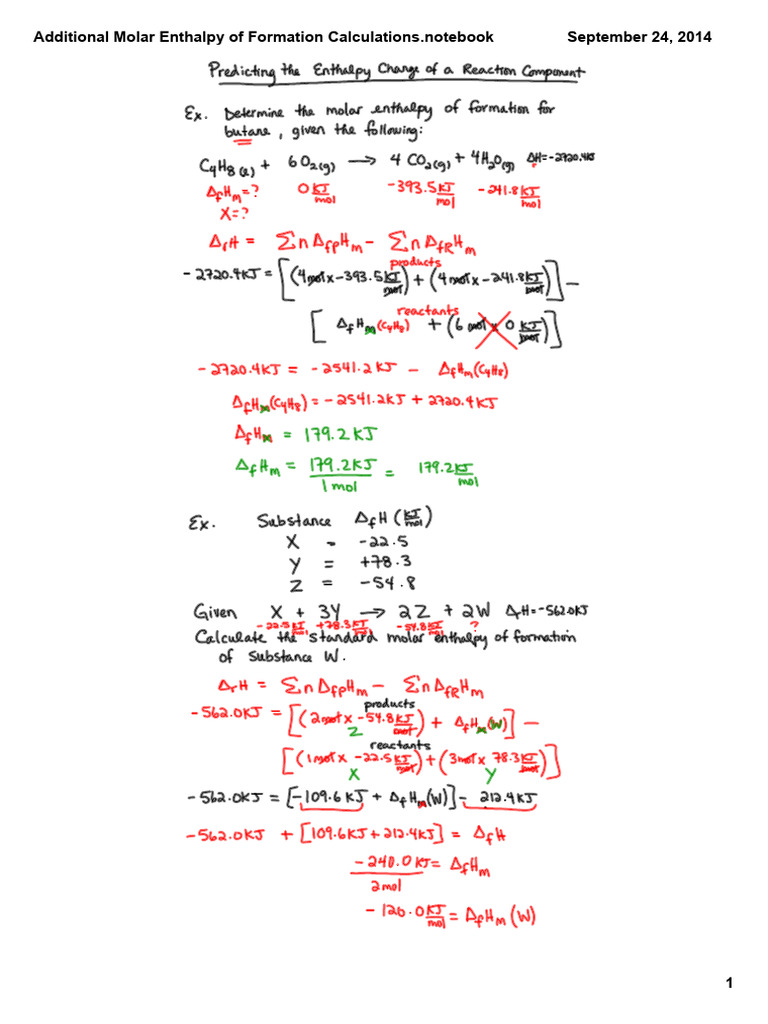 Additional Molar Enthalpy of Formation Calculations.notebook September 24, 2014
Predicting the Enthalpy Change of a Reaction Component
Ex. Determine the molar enthalpy of formation for
butane, given the following:
C₄H₈(l) + 6O₂(g) → 4 CO₂(g) + 4H₂O(g) ΔH=-2720.4KJ
ΔfHm=? 0 KJ/mol -393.5 KJ/mol -241.8 KJ/mol
X=?
ΔrH = ΣnΔfPHm - ΣnΔfRHm
products
-2720.4KJ = [(4mol x -393.5 KJ/mol) + (4mol x -241.8 KJ/mol)] -
reactants
[ΔfHm(C₄H₈) + (6 mol x 0 KJ/mol)]
-2720.4KJ = -2541.2 KJ - ΔfHm(C₄H₈)
ΔfHm(C₄H₈) = -2541.2KJ + 2720.4KJ
ΔfHm = 179.2KJ
ΔfHm = 179.2KJ/1 mol = 179.2 KJ/mol
Ex. Substance ΔfH (KJ/mol)
X - -22.5
Y = +78.3
Z = -54.8
Given X + 3Y → 2Z + 2W ΔrH=-562.0KJ
-22.5 KJ/mol +78.3 KJ/mol -54.8 KJ/mol ?
Calculate the standard molar enthalpy of formation
of substance W.
ΔrH = ΣnΔfPHm - ΣnΔfRHm
products
-562.0KJ = [(2mol x -54.8 KJ/mol) + ΔfHm(W)] -
Z
reactants
[(1mol x -22.5 KJ/mol) + (3mol x 78.3 KJ/mol)]
X Y
-562.0KJ = [-109.6 KJ + ΔfHm(W)] - 212.4KJ
-562.0KJ + [109.6KJ + 212.4KJ] = ΔfH
-240.0 KJ/2mol = ΔfHm
-120.0 KJ/mol = ΔfHm (W)
1